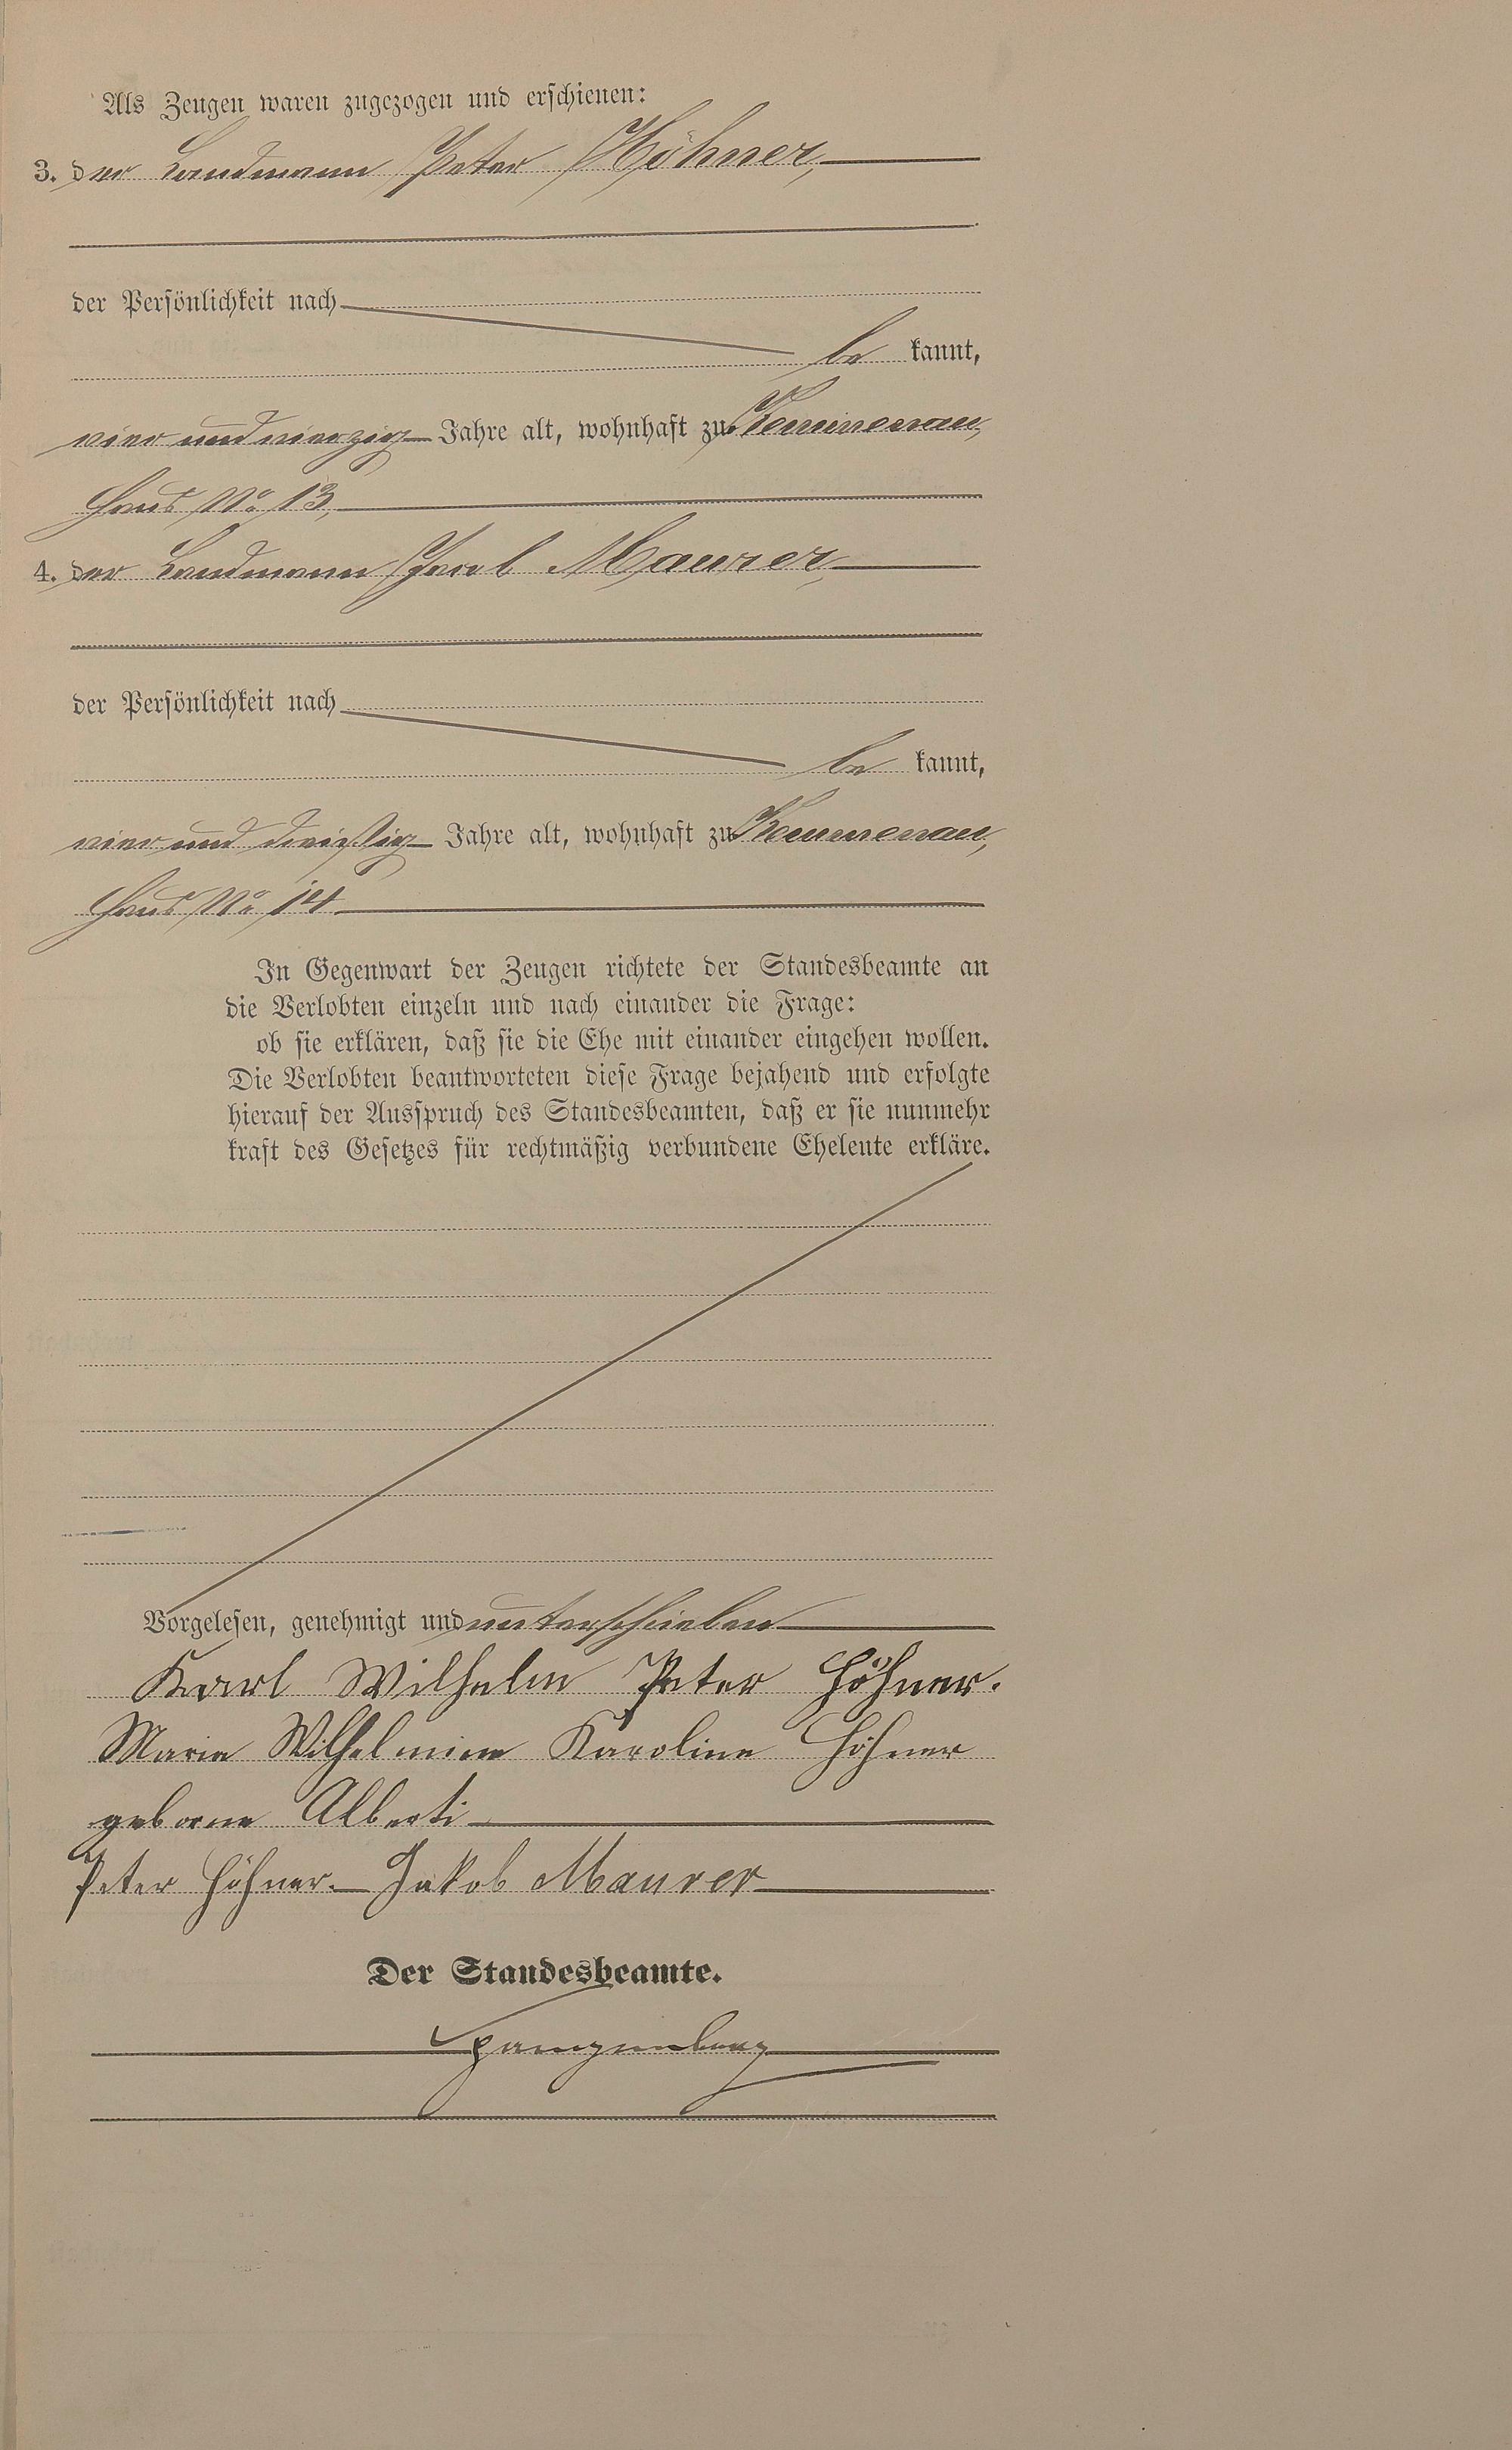 Als Zeugen waren zugezogen und erschienen:
3. der Landmann Peter Höhner,
der Persönlichkeit nach
be kannt,
vier und vierzig Jahre alt, wohnhaft zu Kemmenau,
Haus No. 13,
4. der Landmann Jacob Maurer,
der Persönlichkeit nach
be kannt,
vier und dreißig Jahre alt, wohnhaft zu Kemmenau,
Haus No. 14.
In Gegenwart der Zeugen richtete der Standesbeamte an
die Verlobten einzeln und nach einander die Frage:
ob sie erklären, daß sie die Ehe mit einander eingehen wollen.
Die Verlobten beantworteten diese Frage bejahend und erfolgte
hierauf der Ausspruch des Standesbeamten, daß er sie nunmehr
kraft des Gesetzes für rechtmäßig verbundene Eheleute erkläre.
Vorgelesen, genehmigt und unterschrieben
Karl Wilhelm Peter Höhner.
Maria Wilhelmine Karoline Höhner
geborne Alberti
Peter Höhner. Jakob Maurer
Der Standesbeamte.
Spangenberg